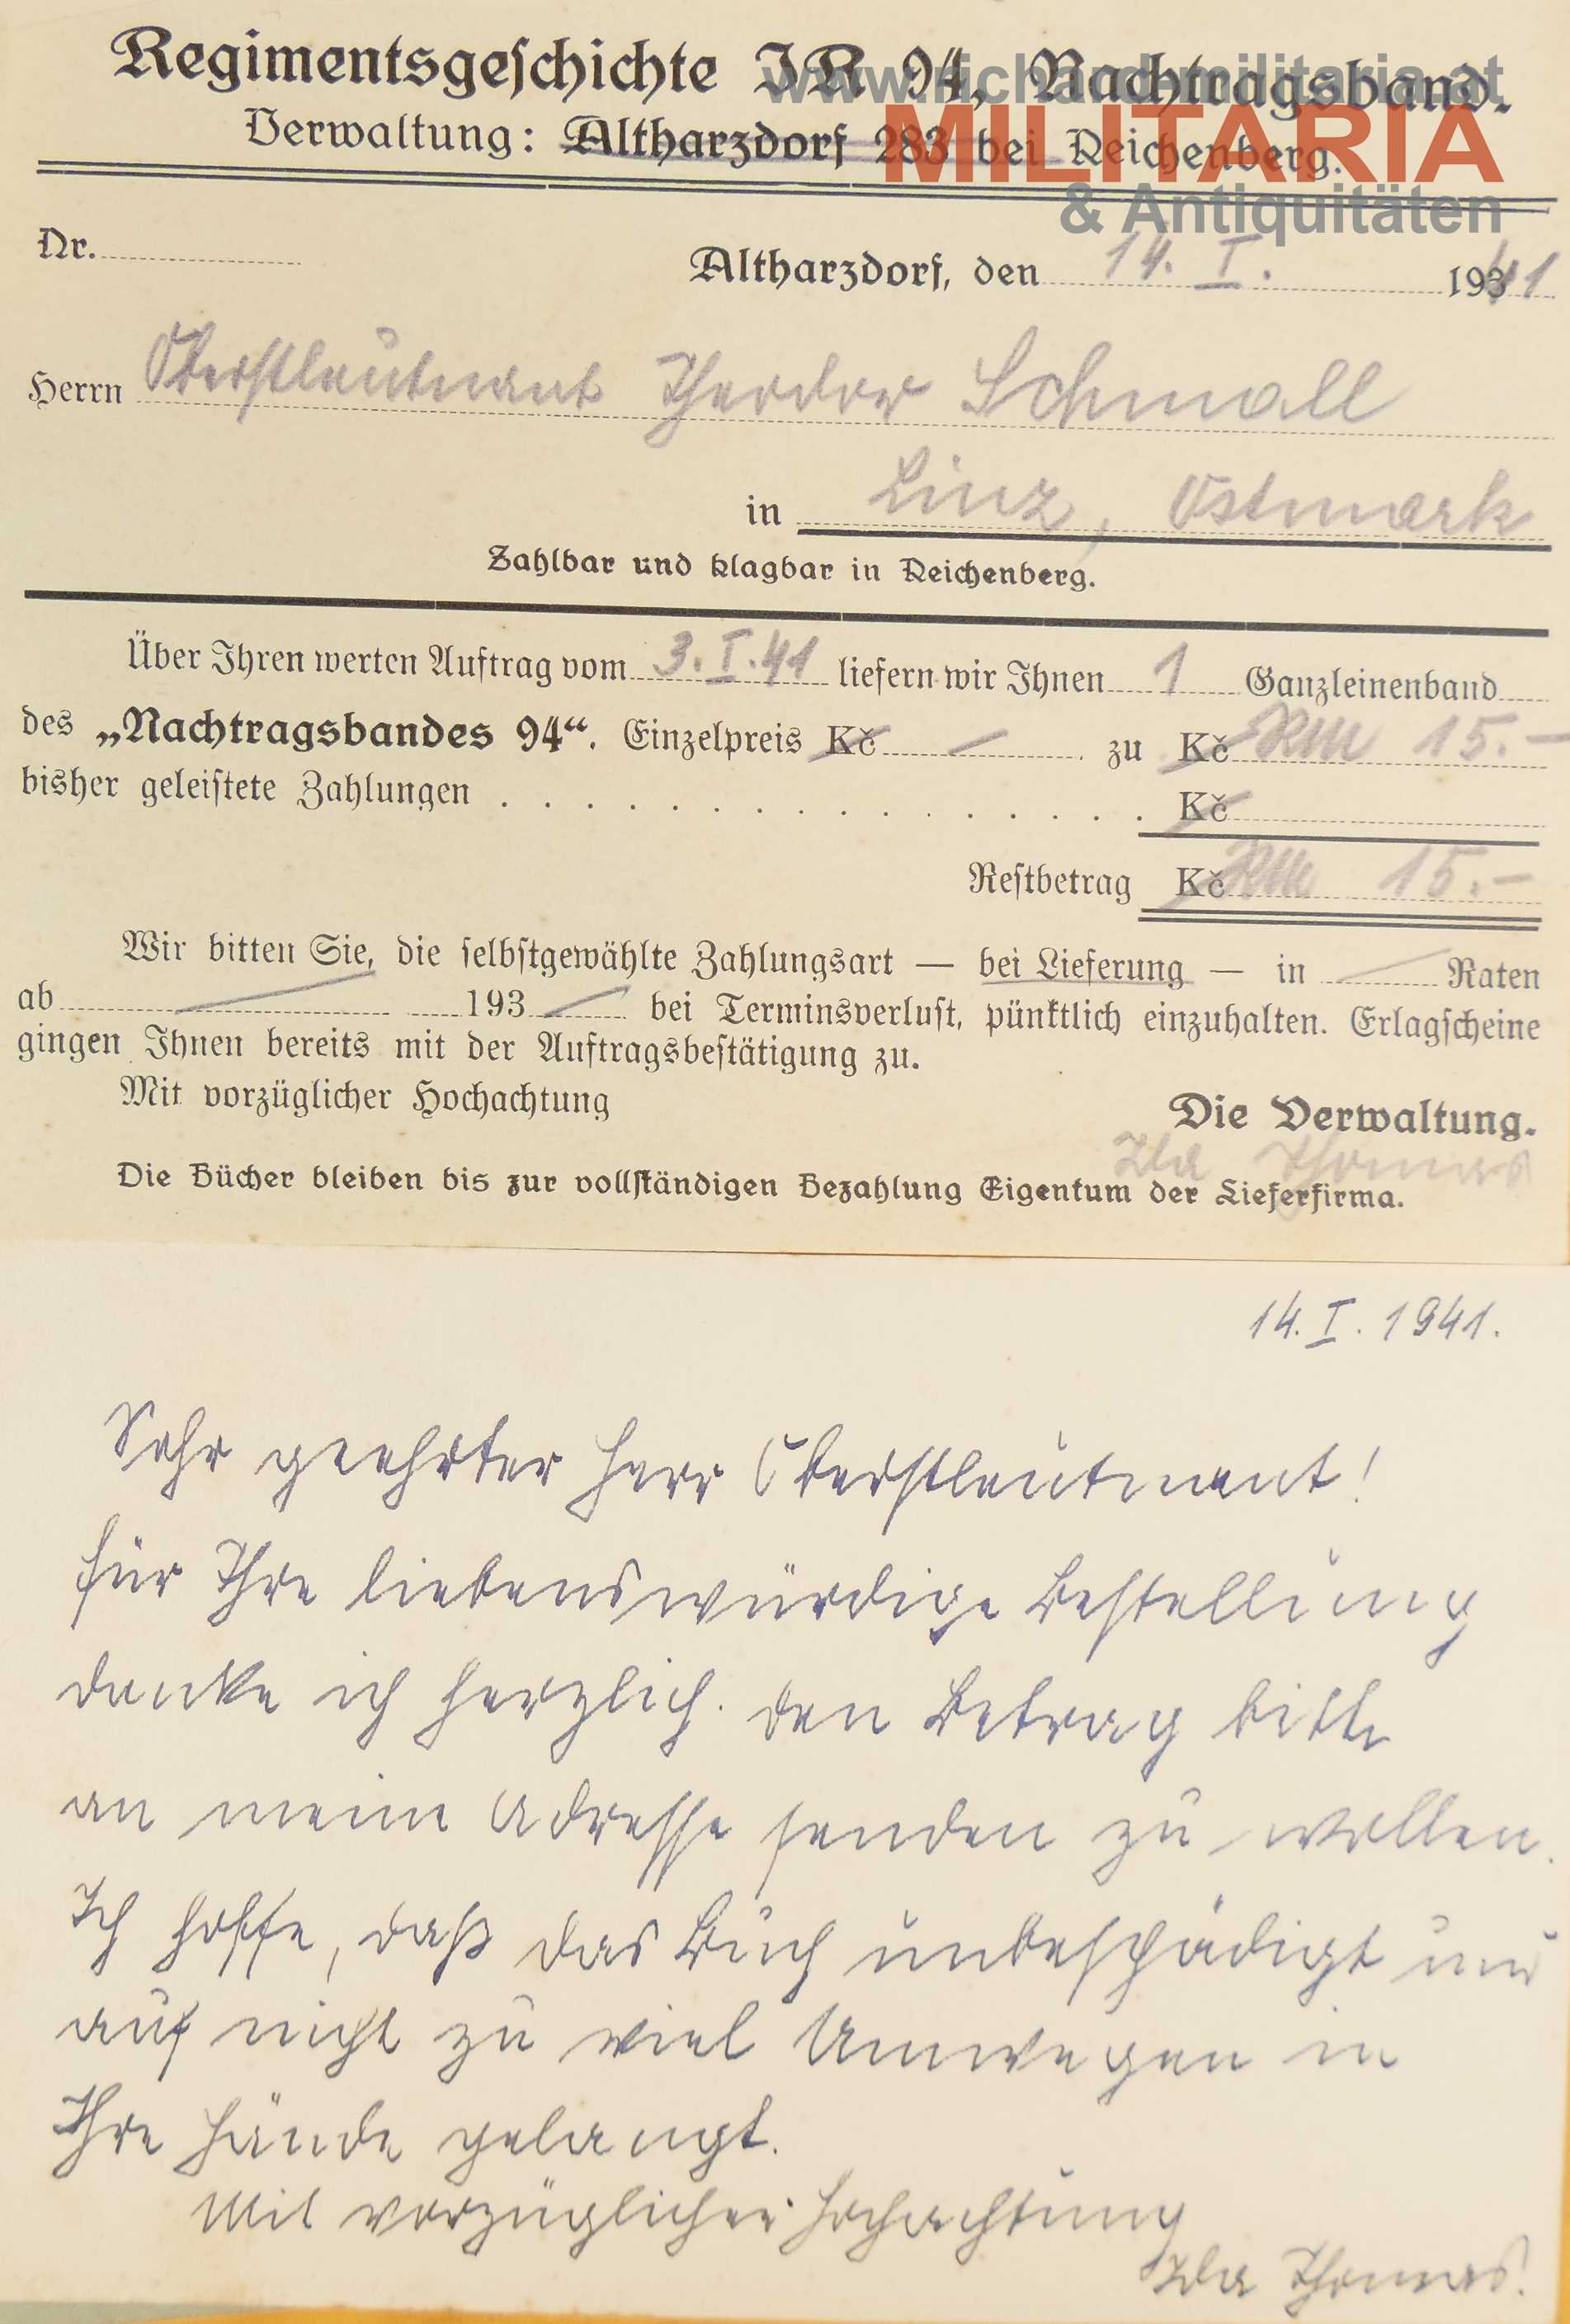 Regimentsgeschichte IR 94, Nachtragsband.
www.richard-militaria.at
MILITARIA
& Antiquitäten
Verwaltung: Altharzdorf 283 bei Reichenberg.
Nr.
Altharzdorf, den 14. I. 1941
Herrn Oberstleutnant Theodor Schmall
in Linz, Ostmark
Zahlbar und klagbar in Reichenberg.
Über Ihren werten Auftrag vom 3. I. 41 liefern wir Ihnen 1 Ganzleinenband
des „Nachtragsbandes 94“. Einzelpreis Kč — zu Kč RM 15.—
bisher geleistete Zahlungen . . . . . . . . . . . . . . . . Kč
Restbetrag Kč RM 15.—
Wir bitten Sie, die selbstgewählte Zahlungsart — bei Lieferung — in — Raten
ab — 193 — bei Terminsverlust, pünktlich einzuhalten. Erlagscheine
gingen Ihnen bereits mit der Auftragsbestätigung zu.
Mit vorzüglicher Hochachtung
Die Verwaltung.
Ida Thomas
Die Bücher bleiben bis zur vollständigen Bezahlung Eigentum der Lieferfirma.
14. I. 1941.
Sehr geehrter Herr Oberstleutnant!
Für Ihre liebenswürdige Bestellung
danke ich herzlich. Den Betrag bitte
an meine Adresse senden zu wollen.
Ich hoffe, daß das Buch unbeschädigt und
auf nicht zu viel Umwegen in
Ihre Hände gelangt.
Mit vorzüglicher Hochachtung
Ida Thomas.